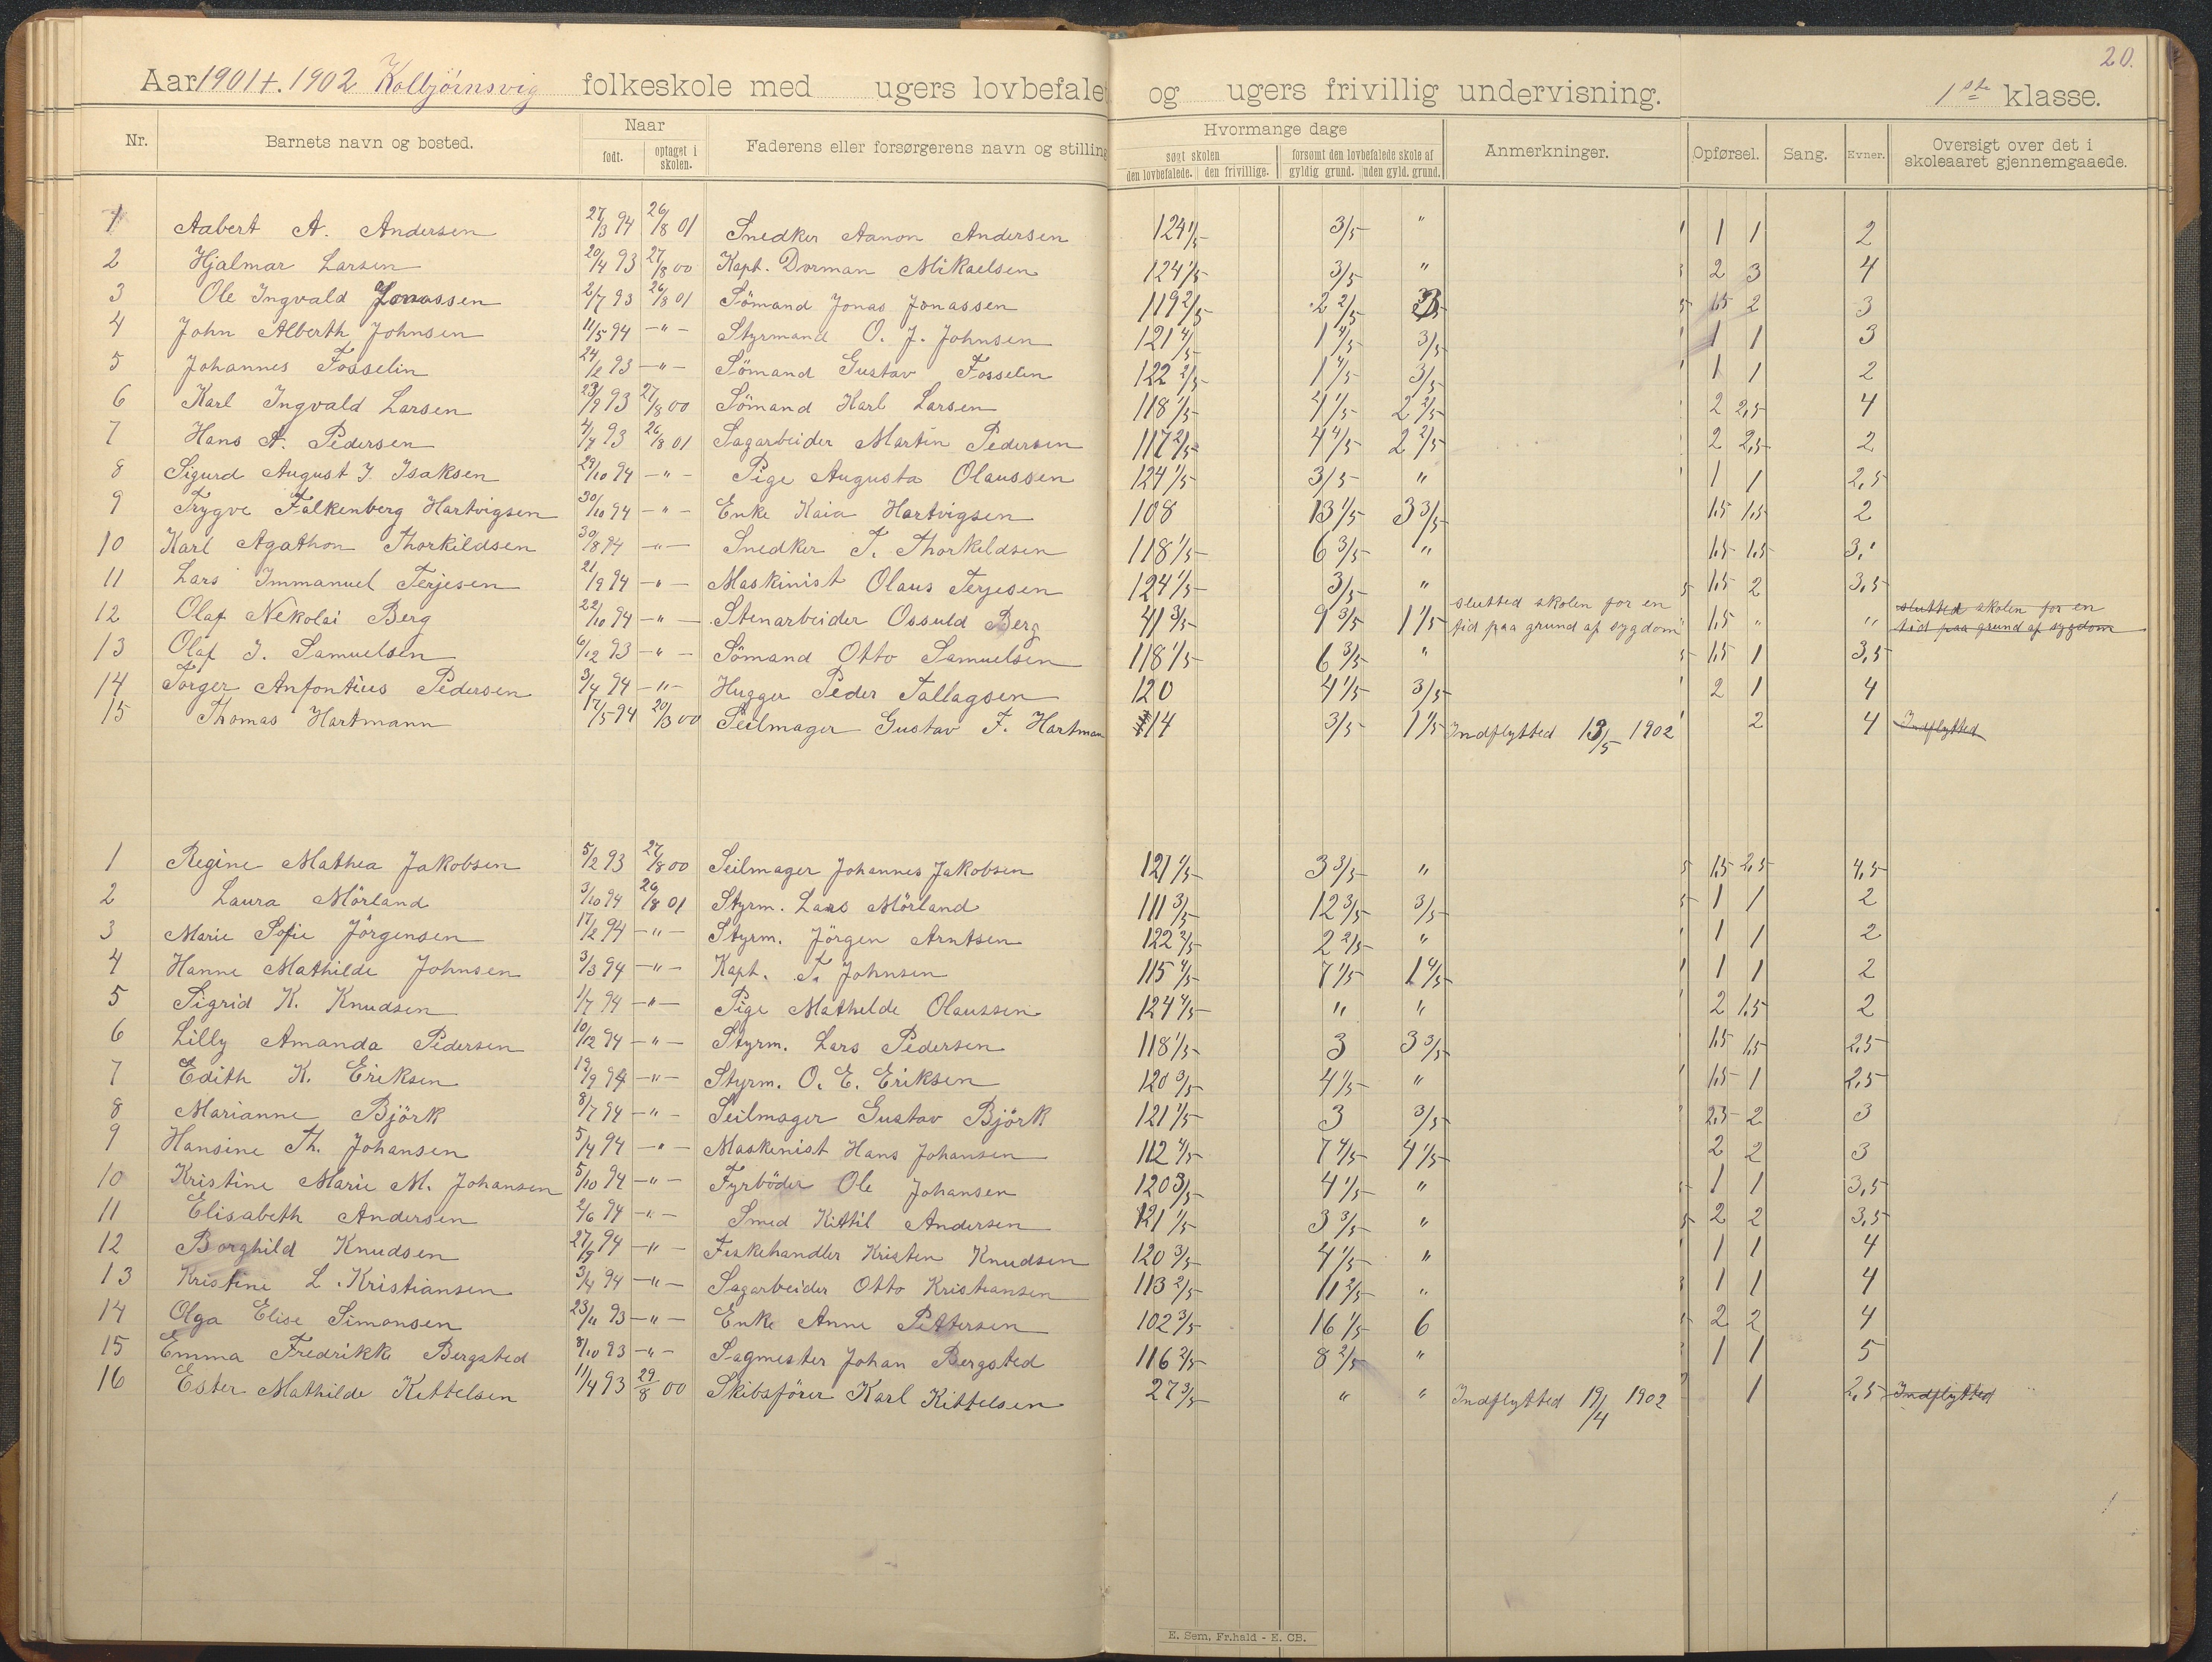 20.
Aar 1901 t. 1902 Kolbjörnsvig folkeskole med ugers lovbefale og ugers frivillig undervisning. 1ste klasse.
Nr. Barnets navn og bosted. Naar Faderens eller forsørgerens navn og stilling Hvormange dage Anmerkninger. Opførsel. Sang. Evner. Oversigt over det i skoleaaret gjennemgaaede.
født. optaget i skolen. søgt skolen forsømt den lovbefalede skole af
den lovbefalede. den frivillige. gyldig grund. uden gyld. grund.
1 Aabert A. Andersen 27/3 94 26/8 01 Snedker Aanon Andersen 124 1/5 3/5 " 1 1 2
2 Hjalmar Larsen 20/4 93 27/8 00 Kapt. Dorman Mikaelsen 124 1/5 3/5 " 2 3 4
3 Ole Ingvald Jonassen 2/7 93 26/8 01 Sömand Jonas Jonassen 119 2/5 2 2/5 3 1,5 2 3
4 John Alberth Johnsen 11/5 94 -"- Styrmand O. J. Johnsen 121 4/5 1 4/5 3/5 1 1 3
5 Johannes Fosselin 24/2 93 -"- Sömand Gustav Fosselin 122 2/5 1 4/5 3/5 1 1 2
6 Karl Ingvald Larsen 23/9 93 27/8 00 Sömand Karl Larsen 118 1/5 4 1/5 2 2/5 2 2,5 4
7 Hans A. Pedersen 4/7 93 26/8 01 Sagarbeider Martin Pedersen 117 2/5 4 4/5 2 2/5 2 2,5 2
8 Sigurd August J. Isaksen 29/10 94 -"- Pige Augusta Olaussen 124 1/5 3/5 " 1 1 2,5
9 Trygve Falkenberg Hartvigsen 30/10 94 -"- Enke Kaia Hartvigsen 108 13 1/5 3 3/5 1,5 1,5 2
10 Karl Agathon Thorkildsen 30/8 94 -"- Snedker T. Thorkildsen 118 1/5 6 3/5 " 1,5 1,5 3,
11 Lars Immanuel Terjesen 21/9 94 -"- Maskinist Olaus Terjesen 124 1/5 3/5 " 1,5 2 3,5
12 Olaf Nekolai Berg 22/10 94 -"- Stenarbeider Ossuld Berg 41 3/5 9 3/5 1 1/5 sluttet skolen for en tid paa grund af sygdom 1,5 " " sluttet skolen for en tid paa grund af sygdom
13 Olaf J. Samuelsen 6/12 93 -"- Sömand Otto Samuelsen 118 1/5 6 3/5 " 1,5 1 3,5
14 Torger Anfontius Pedersen 3/4 94 -"- Hugger Peder Tallagsen 120 4 1/5 3/5 2 1 4
15 Thomas Hartmann 17/5 94 20/3 00 Seilmager Gustav F. Hartman 14 3/5 1 1/5 Indflytted 13/5 1902 2 4 Indflytted
1 Regine Mathea Jakobsen 5/2 93 27/8 00 Seilmager Johannes Jakobsen 121 1/5 3 3/5 " 1,5 2,5 4,5
2 Laura Mörland 3/10 94 26/8 01 Styrm. Lars Mörland 111 3/5 12 3/5 3/5 1 1 2
3 Marie Sofie Jörgensen 17/2 94 -"- Styrm. Jörgen Arntsen 122 2/5 2 2/5 " 1 1 2
4 Hanne Mathilde Johnsen 3/3 94 -"- Kapt. T. Johnsen 115 4/5 7 1/5 1 4/5 1 1 2
5 Sigrid K. Knudsen 1/7 94 -"- Pige Mathelde Olaussen 124 4/5 " " 2 1,5 2
6 Lilly Amanda Pedersen 10/12 94 -"- Styrm. Lars Pedersen 118 1/5 3 3 3/5 1,5 1,5 2,5
7 Edith K. Eriksen 19/9 94 -"- Styrm. O. E. Eriksen 120 3/5 4 1/5 " 1,5 1 2,5
8 Marianne Björk 8/7 94 -"- Seilmager Gustav Björk 121 1/5 3 3/5 2,3 2 3
9 Hansine Th. Johansen 5/4 94 -"- Maskenist Hans Johansen 112 4/5 7 4/5 4 1/5 2 2 3
10 Kristine Marie M. Johansen 5/10 94 -"- Fyrböder Ole Johansen 120 3/5 4 1/5 " 1 1 3,5
11 Elisabeth Andersen 2/6 94 -"- Smed Kittil Andersen 121 1/5 3 3/5 " 2 2 3,5
12 Borghild Knudsen 27/9 94 -"- Feskehandler Kristen Knudsen 120 3/5 4 1/5 " 1 1 4
13 Kristine L. Kristiansen 3/4 94 -"- Sagarbeider Otto Kristiansen 113 2/5 11 2/5 " 1 1 4
14 Olga Elise Simonsen 23/11 93 -"- Enke Anne Pettersen 102 3/5 16 1/5 6 2 2 4
15 Emma Fredrikke Bergsted 8/10 93 -"- Sagmester Johan Bergsted 116 2/5 8 2/5 " 1 1 5
16 Ester Mathilde Kittelsen 11/4 93 29/8 00 Skibsförer Karl Kittelsen 27 3/5 " " Indflytted 19/4 1902 1 2,5 Indflytted
E. Sem, Fr.hald - E. CB.